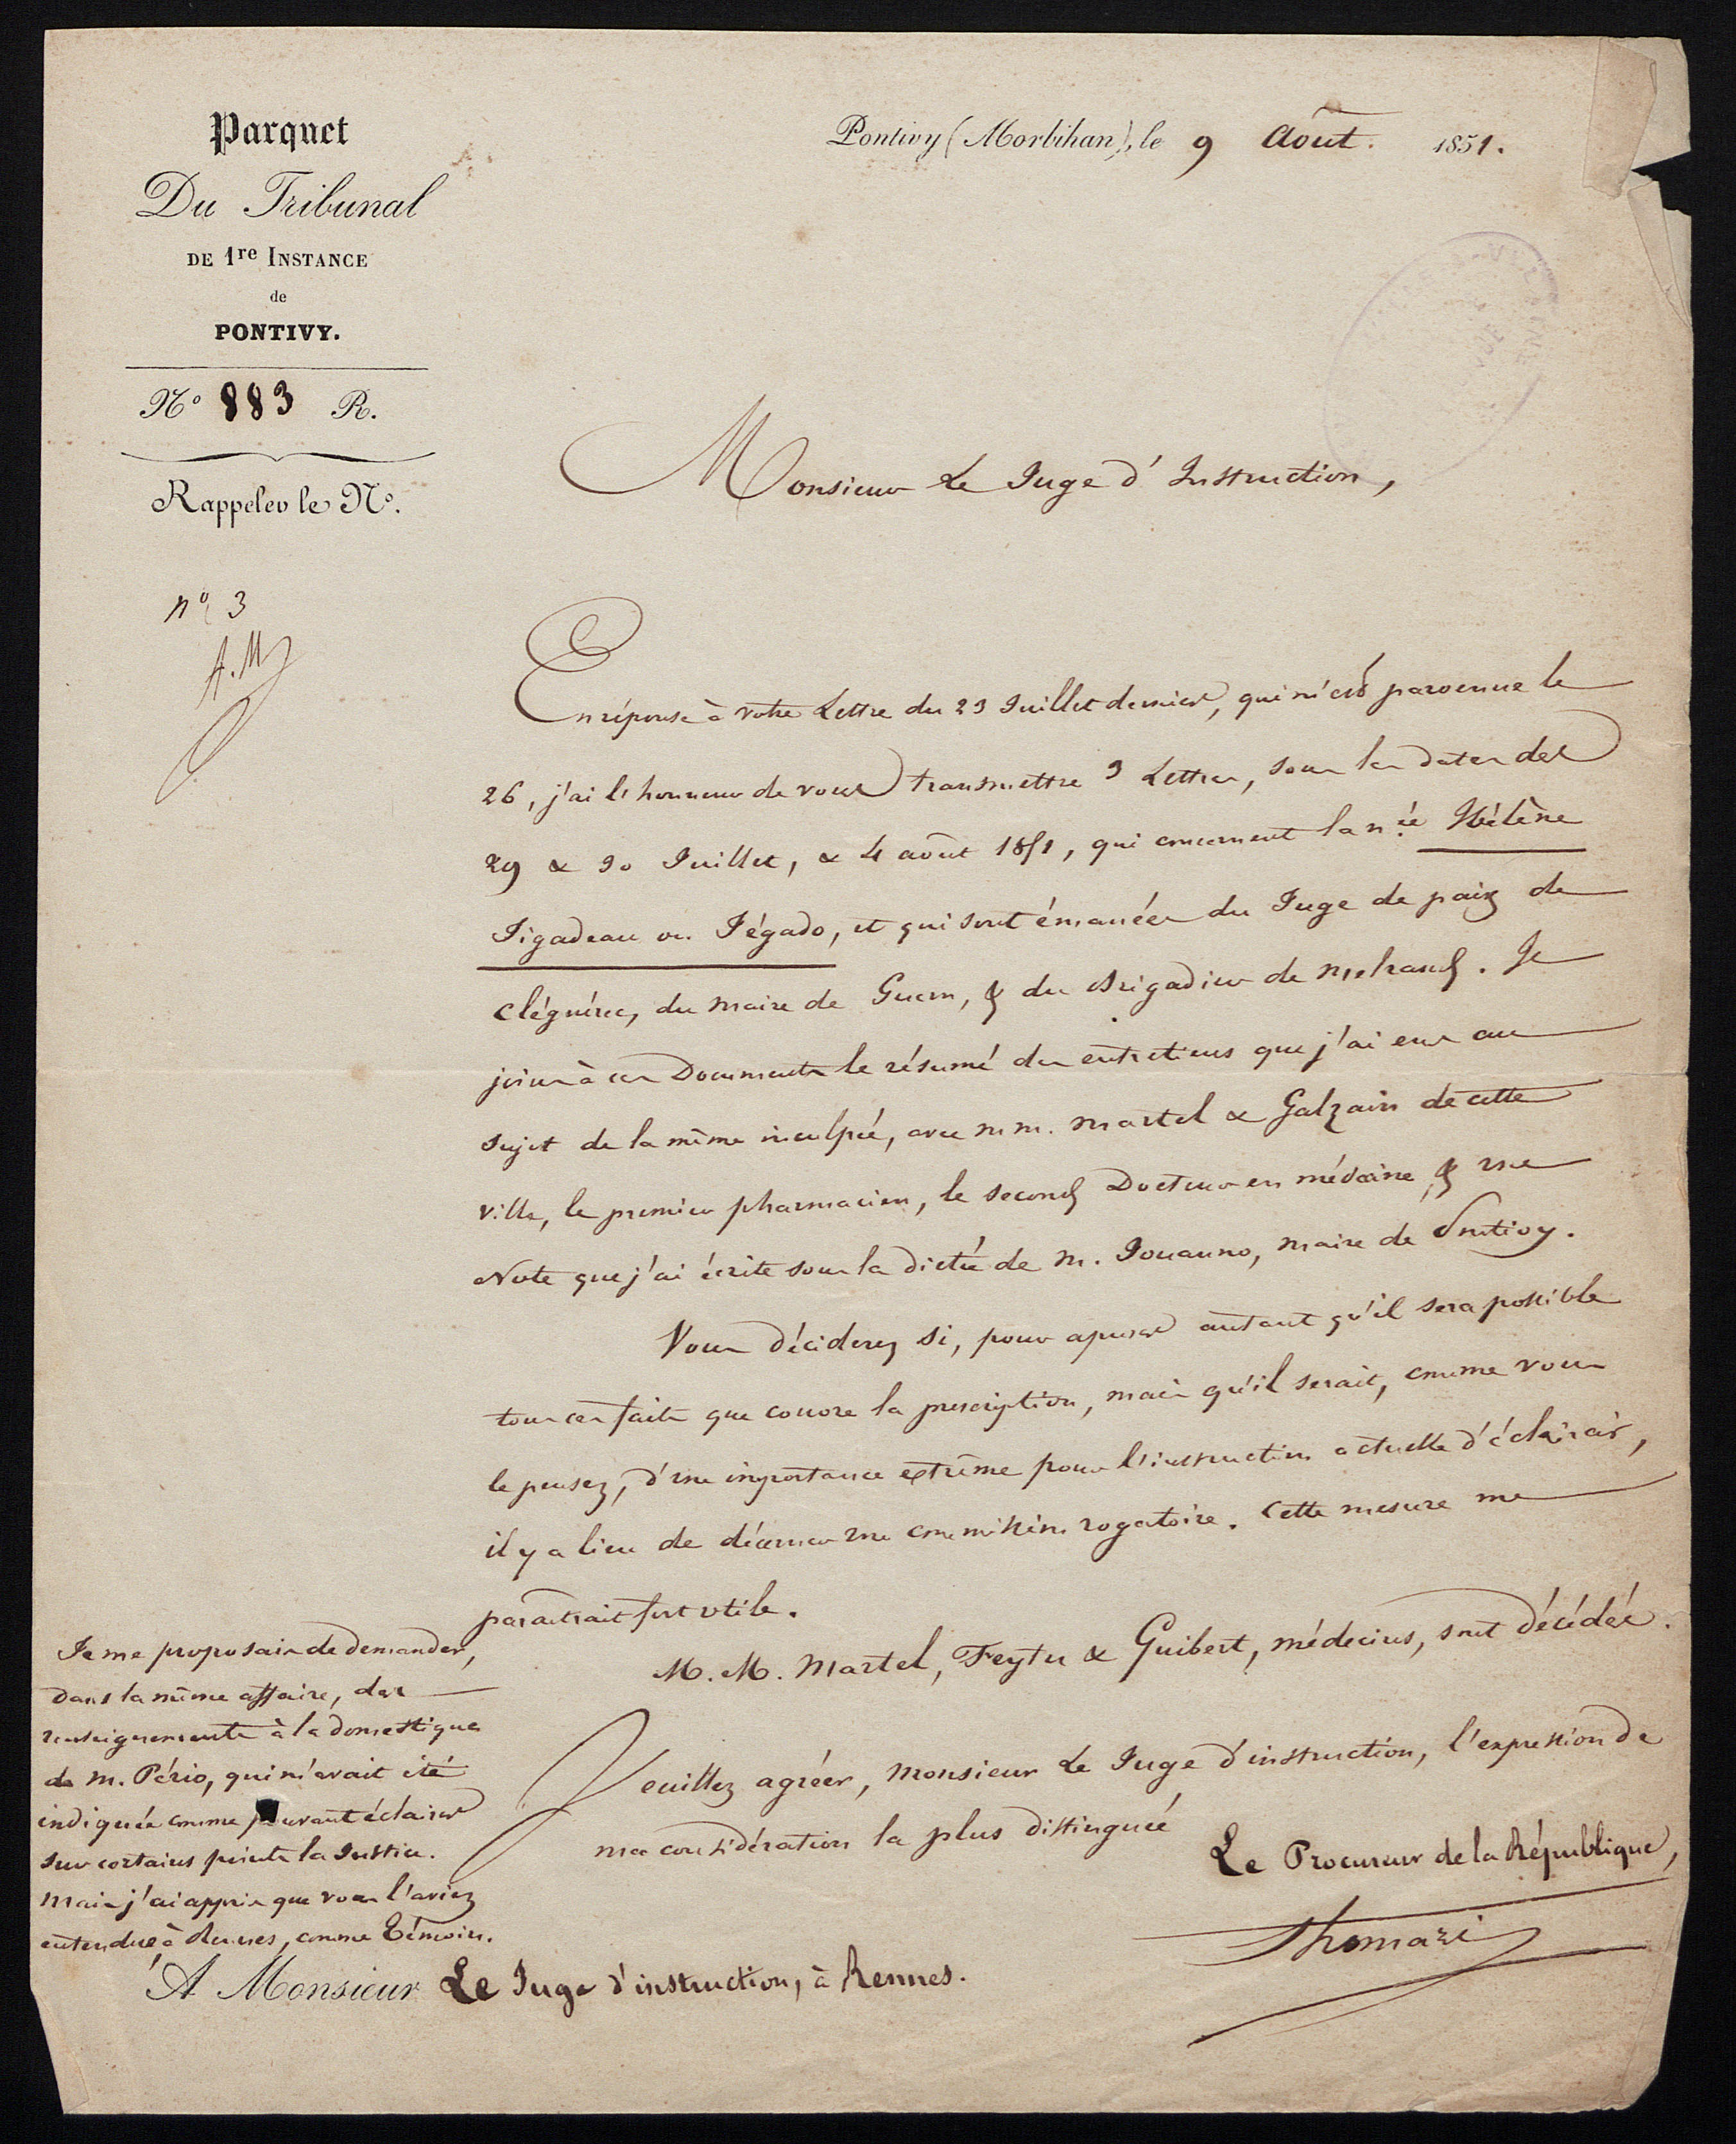 Parquet
Du Tribunal
DE 1re INSTANCE
de
PONTIVY.
N° 883 R.
Rappeler le N°.
n° 3
A.M
Pontivy (Morbihan), le 9 Août. 1851.
Monsieur Le Juge d'Instruction,
En réponse à votre Lettre du 23 Juillet dernier, qui m'est parvenue le
26, j'ai l'honneur de vous transmettre 3 Lettres, sous les dates des
29 & 30 Juillet, & 4 août 1851, qui concernent la née Hélène
Jigadeau ou Jégado, et qui sont émanées du Juge de paix de
Cléguérec, du Maire de Guern, & du Brigadier de Melrand. Je
joins à ces Documents le résumé des entretiens que j'ai eus au
sujet de la même inculpée, avec m.m. Martel & Galzain de cette
ville, le premier pharmacien, le second Docteur en médecine, & une
Note que j'ai écrite sous la dictée de M. Jouanno, Maire de Pontivy.
Vous déciderez si, pour apurer autant qu'il sera possible
tous ces faits que couvre la prescription, mais qu'il serait, comme vous
le pensez, d'une importance extrême pour l'instruction actuelle d'éclaircir,
il y a lieu de décerner une commission rogatoire. Cette mesure me
paraîtrait fort utile.
M.M. Martel, Feytu & Guibert, médecins, sont décédés.
Veuillez agréer, Monsieur Le Juge d'instruction, l'expression de
ma considération la plus distinguée
Le Procureur de la République,
Thomazi
Je me proposais de demander,
dans la même affaire, des
renseignements à la domestique
de M. Pério, qui m'avait été
indiquée comme pouvant éclairer
sur certains points la Justice.
Mais j'ai appris que vous l'aviez
entendue à Rennes, comme témoin.
A Monsieur Le Juge d'instruction, à Rennes.